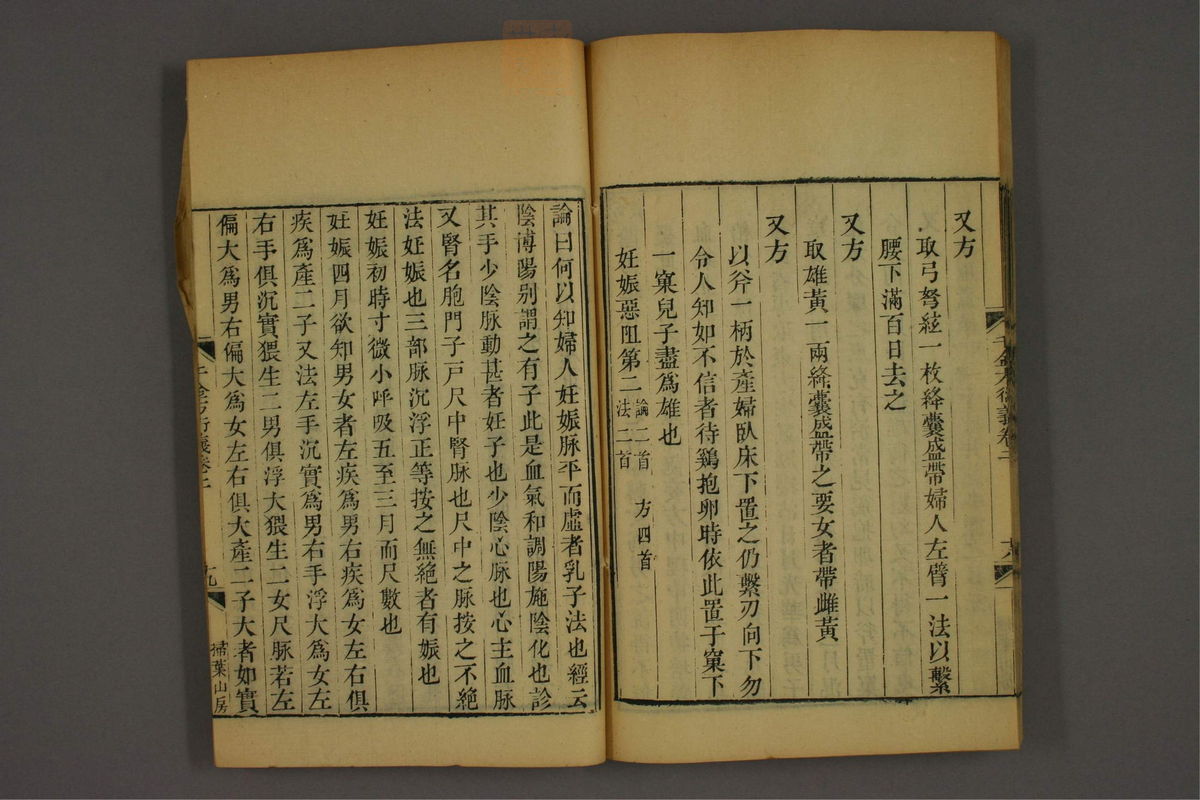 又方
取弓弩絃一枚絳囊盛帶婦人左臂一法以繫
腰下滿百日去之
又方
取雄黃一兩絳囊盛帶之要女者帶雌黃
又方
以斧一柄於產婦臥床下置之仍繫刃向下勿
令人知如不信者待鷄抱卵時依此置于窠下
一窠兒子盡爲雄也
妊娠惡阻第二 論二首 法二首 方四首
論曰何以知婦人妊娠脉平而虛者乳子法也經云
陰博陽别謂之有子此是血氣和調陽施陰化也診
其手少陰脉動甚者妊子也少陰心脉也心主血脉
又腎名胞門子戸尺中腎脉也尺中之脉按之不絶
法妊娠也三部脉沉浮正等按之無絶者有娠也
妊娠初時寸微小呼吸五至三月而尺數也
妊娠四月欲知男女者左疾爲男右疾爲女左右俱
疾爲產二子又法左手沉實爲男右手浮大爲女左
右手俱沉實猥生二男俱浮大猥生二女尺脉若左
偏大爲男右偏大爲女左右俱大產二子大者如實
千金方衍義卷二
九
掃葉山房